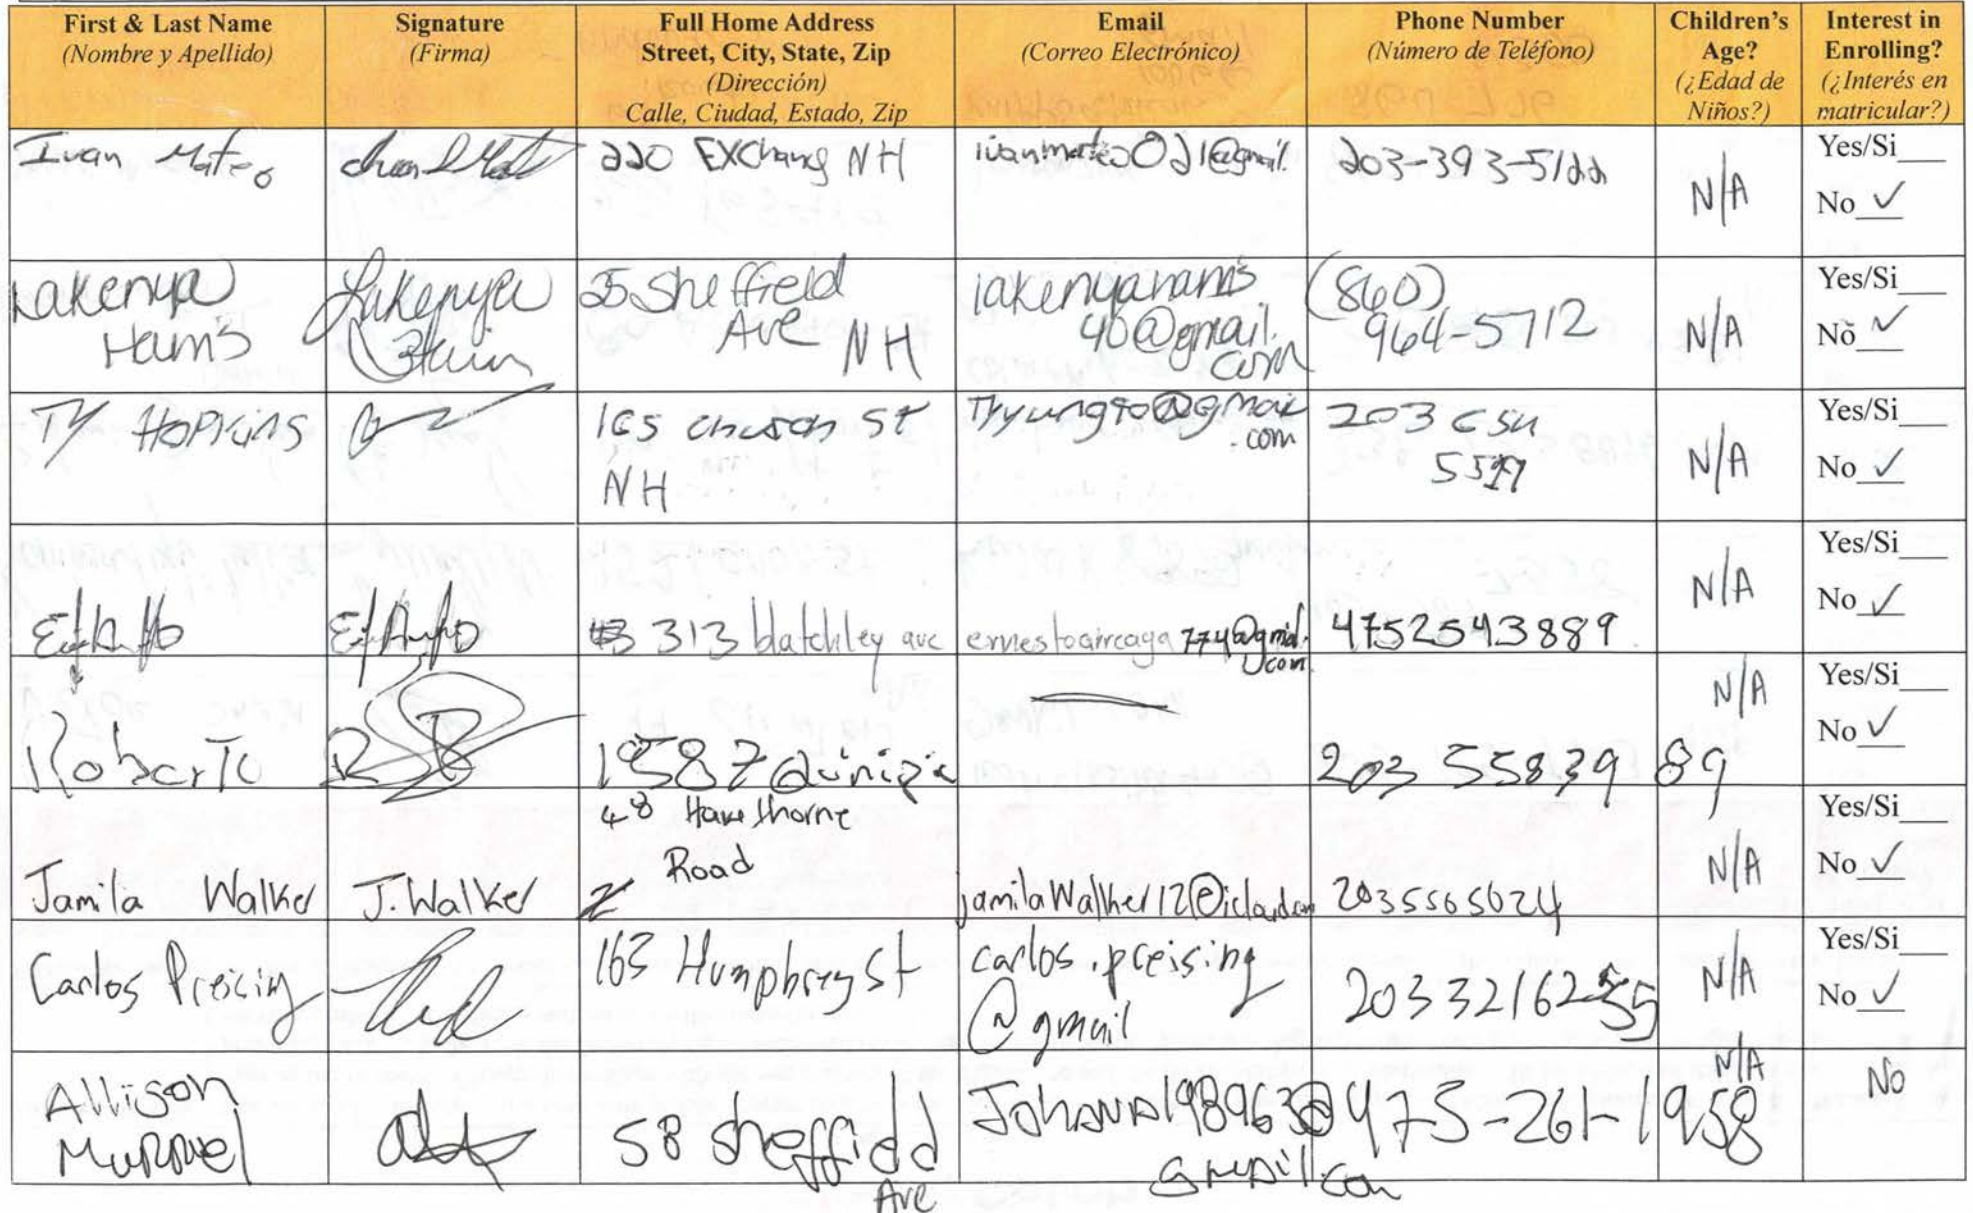 First & Last Name
(Nombre y Apellido)
Signature
(Firma)
Full Home Address
Street, City, State, Zip
(Dirección)
Calle, Ciudad, Estado, Zip
Email
(Correo Electrónico)
Phone Number
(Número de Teléfono)
Children's
Age?
(¿Edad de
Niños?)
Interest in
Enrolling?
(¿Interés en
matricular?)
Ivan Mateo
220 EXChang NH
ivanmateo021@gmail.
203-393-5122
N/A
Yes/Si
No ✓
Lakenya
Harris
Lakenya
Harris
25 Sheffield
Ave
NH
lakenyaharris
40@gmail.
com
(860)
964-5712
N/A
Yes/Si
No ✓
Ty HOPKINS
165 church St
NH
.com
203
N/A
Yes/Si
No ✓
313 blatchley ave
774@gmail.
com
4752543889
N/A
Yes/Si
No ✓
Roberto
1587 Quinipi
203 5583989
N/A
Yes/Si
No ✓
Jamila Walker
J. Walker
48 Hawthorne
Road
jamilaWalker12@icloud.com
2035565024
N/A
Yes/Si
No ✓
Carlos Preising
163 Humphrey St
carlos.preising
@gmail
N/A
Yes/Si
No ✓
Allison
58 Sheffield
Ave
Johanna198963@
gmail.com
475-261-1958
N/A
No